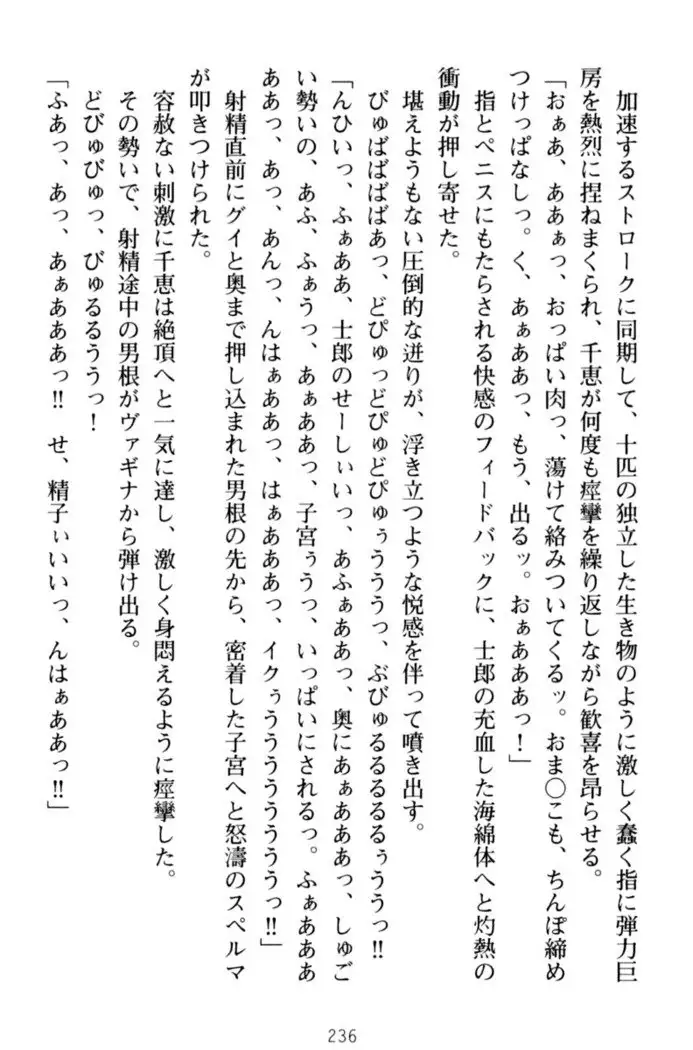 加速するストロークに同期して、十匹の独立した生き物のように激しく蠢く指に弾力巨
房を熱烈に捏ねまくられ、千恵が何度も痙攣を繰り返しながら歓喜を昂らせる。
「おぁあ、ああぁっ、おっぱい肉っ、蕩けて絡みついてくるッ。おま〇こも、ちんぽ締め
つけっぱなしっ。く、あぁああっ、もう、出るッ。おぁあああっ！」
指とペニスにもたらされる快感のフィードバックに、士郎の充血した海綿体へと灼熱の
衝動が押し寄せた。
堪えようもない圧倒的な迸りが、浮き立つような悦感を伴って噴き出す。
びゅばばばばあっ、どぴゅっどぴゅどぴゅぅうううっ、ぶびゅるるるるるぅううっ!!
「んひいっ、ふぁああ、士郎のせーしぃいっ、あふぁああっ、奥にあぁあああっ、しゅご
い勢いの、あふ、ふぁうっ、あぁああっ、子宮ぅうっ、いっぱいにされるっ。ふぁあああ
ああっ、あっ、あんっ、んはぁああっ、はぁあああっ、イクぅうううううううっ!!」
射精直前にグイと奥まで押し込まれた男根の先から、密着した子宮へと怒濤のスペルマ
が叩きつけられた。
容赦ない刺激に千恵は絶頂へと一気に達し、激しく身悶えるように痙攣した。
その勢いで、射精途中の男根がヴァギナから弾け出る。
どびゅびゅっ、びゅるるううっ！
「ふあっ、あっ、あぁあああっ!!　せ、精子ぃいいっ、んはぁああっ!!」
236